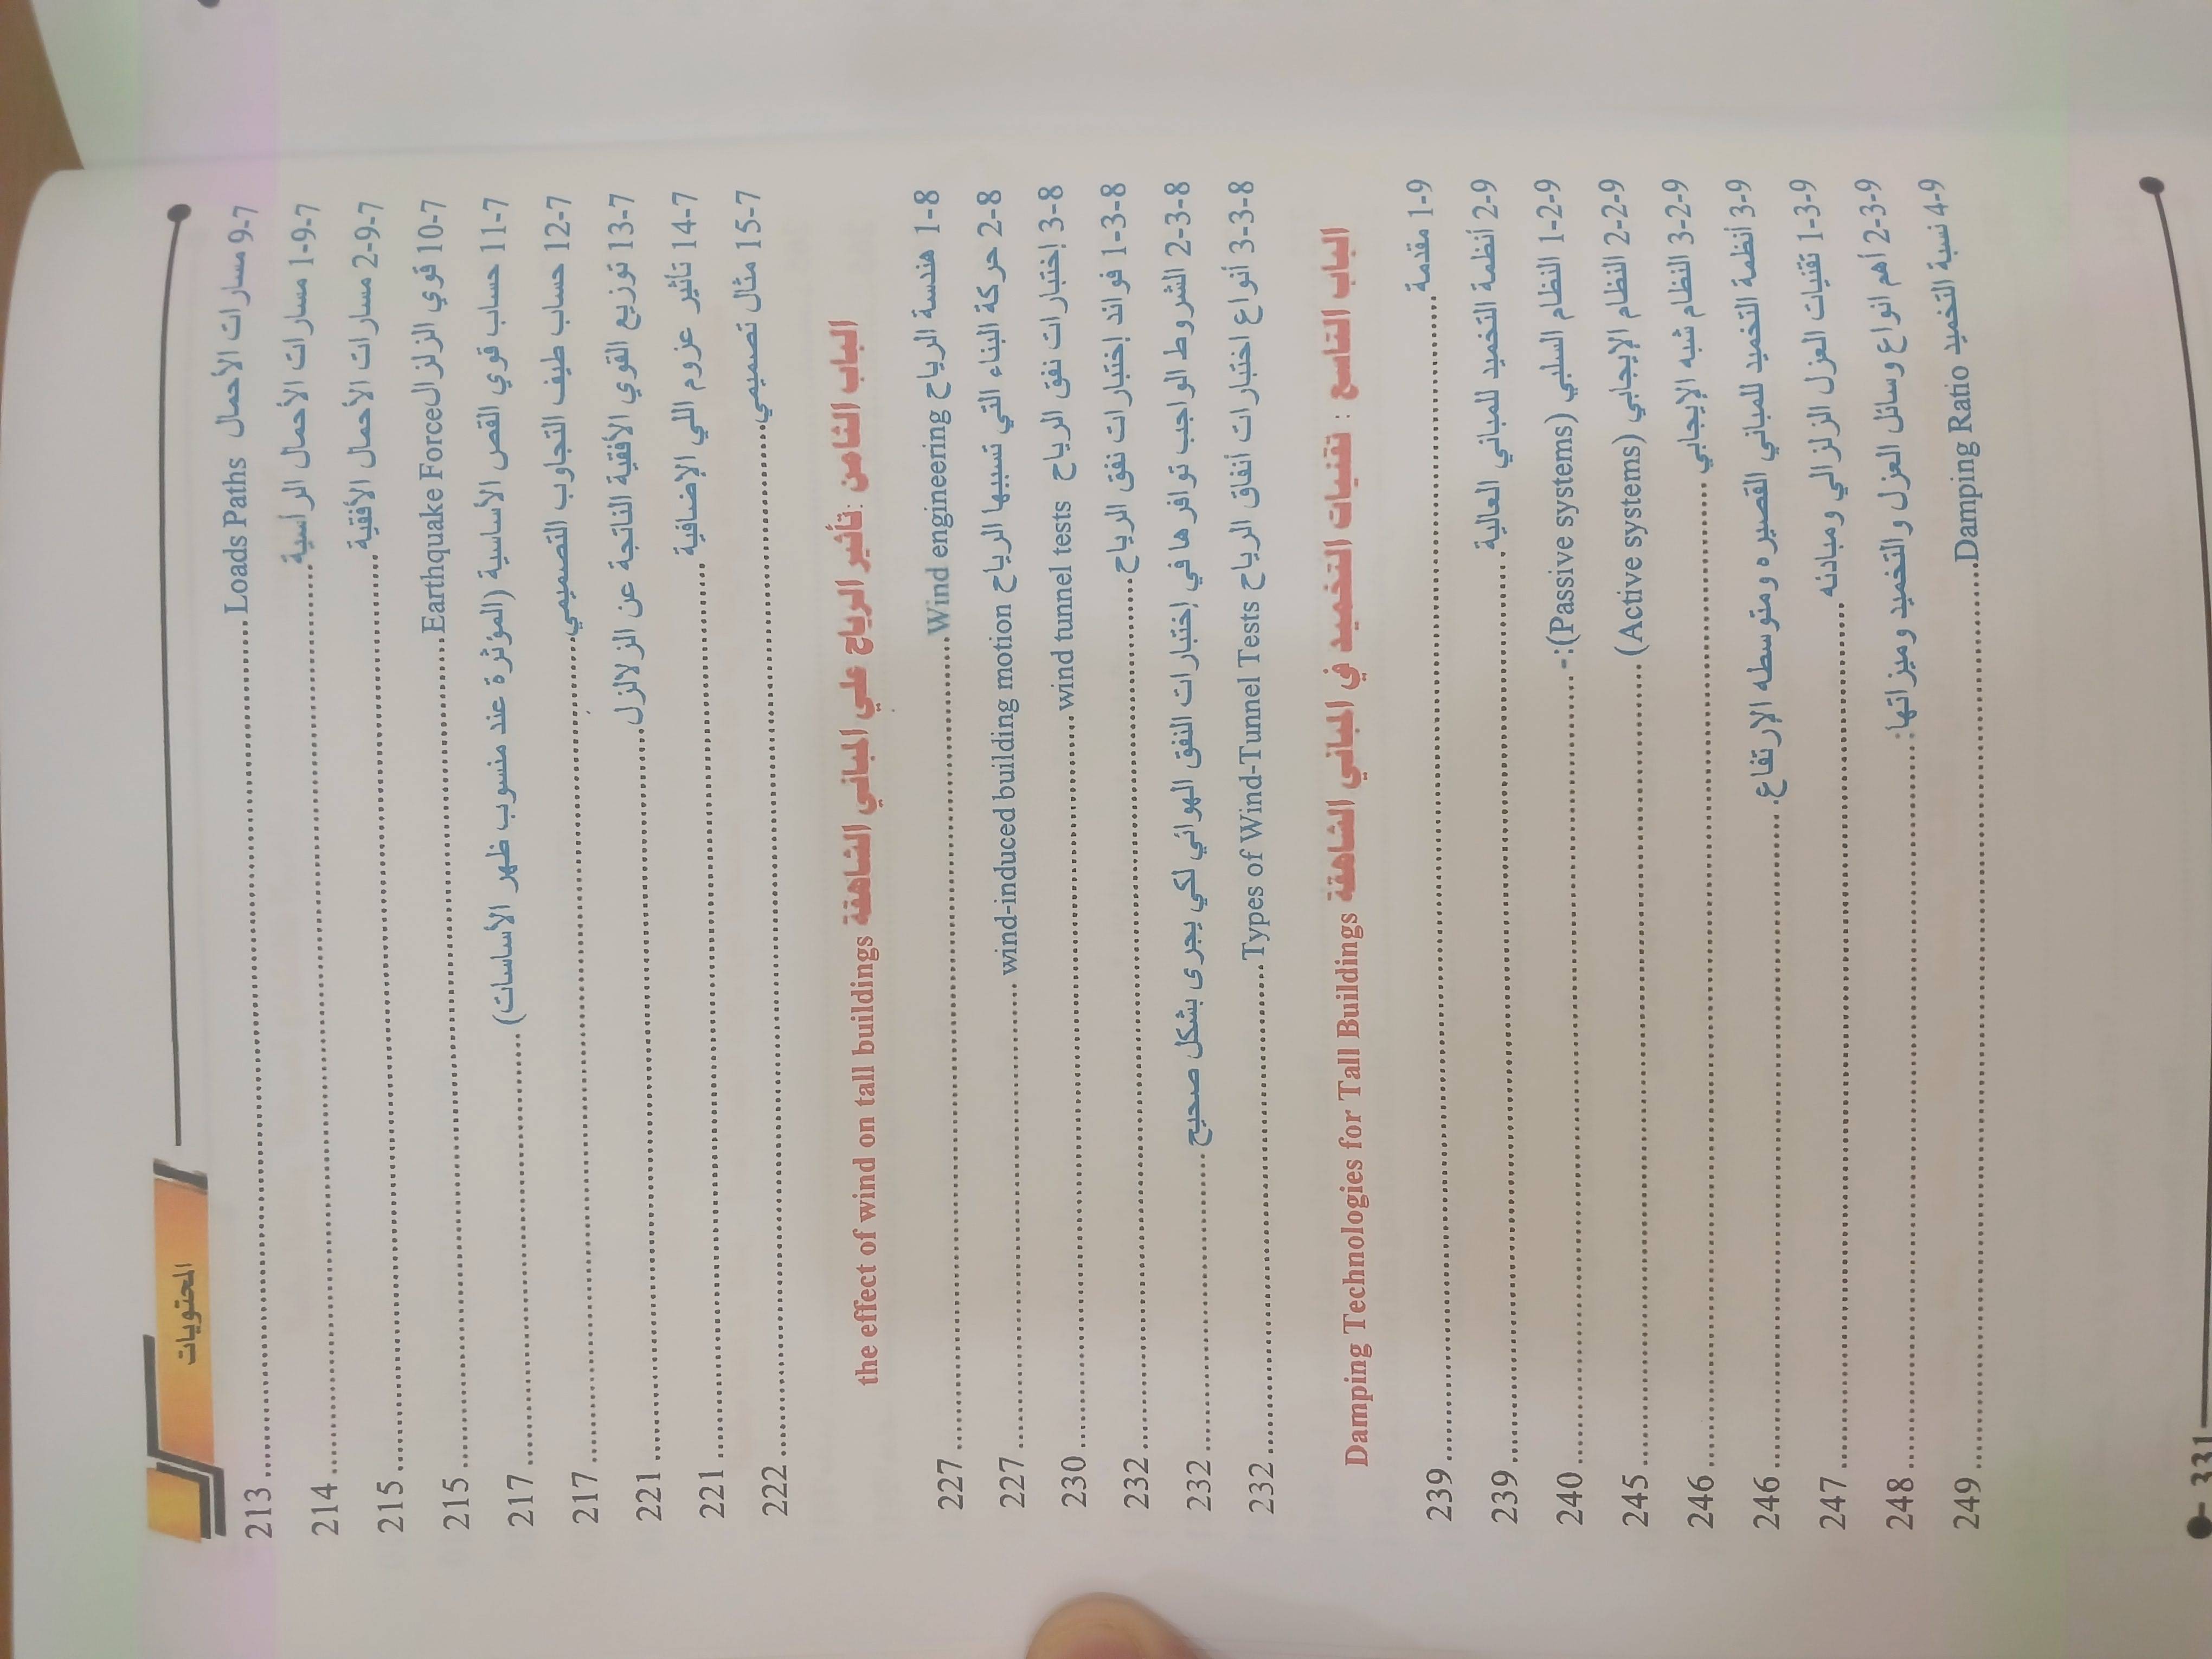 المحتويات
9-7 مسارات الأحمال Loads Paths ........ 213
1-9-7 مسارات الأحمال الرأسية ........ 214
2-9-7 مسارات الأحمال الأفقية ........ 215
10-7 قوي الزلزال Earthquake Force ........ 215
11-7 حساب قوي القص الأساسية (المؤثرة عند منسوب ظهر الأساسات) ........ 217
12-7 حساب طيف التجاوب التصميمي ........ 217
13-7 توزيع القوي الأفقية الناتجة عن الزلازل ........ 221
14-7 تأثير عزوم اللي الإضافية ........ 221
15-7 مثال تصميمي ........ 222
الباب الثامن :تأثير الرياح علي المباني الشاهقة the effect of wind on tall buildings
1-8 هندسة الرياح Wind engineering ........ 227
2-8 حركة البناء التي تسببها الرياح wind-induced building motion ........ 227
3-8 إختبارات نفق الرياح wind tunnel tests ........ 230
1-3-8 فوائد إختبارات نفق الرياح ........ 232
2-3-8 الشروط الواجب توافرها في إختبارات النفق الهوائي لكي يجرى بشكل صحيح ........ 232
3-3-8 أنواع اختبارات أنفاق الرياح Types of Wind-Tunnel Tests ........ 232
الباب التاسع : تقنيات التخميد في المباني الشاهقة Damping Technologies for Tall Buildings
1-9 مقدمة ........ 239
2-9 أنظمة التخميد للمباني العالية ........ 239
1-2-9 النظام السلبي (Passive systems):- ........ 240
2-2-9 النظام الإيجابي (Active systems) ........ 245
3-2-9 النظام شبه الإيجابي ........ 246
3-9 أنظمة التخميد للمباني القصيره ومتوسطه الارتفاع. ........ 246
1-3-9 تقنيات العزل الزلزالي ومبادئه ........ 247
2-3-9 أهم انواع وسائل العزل والتخميد وميزاتها: ........ 248
4-9 نسبة التخميد Damping Ratio ........ 249
331